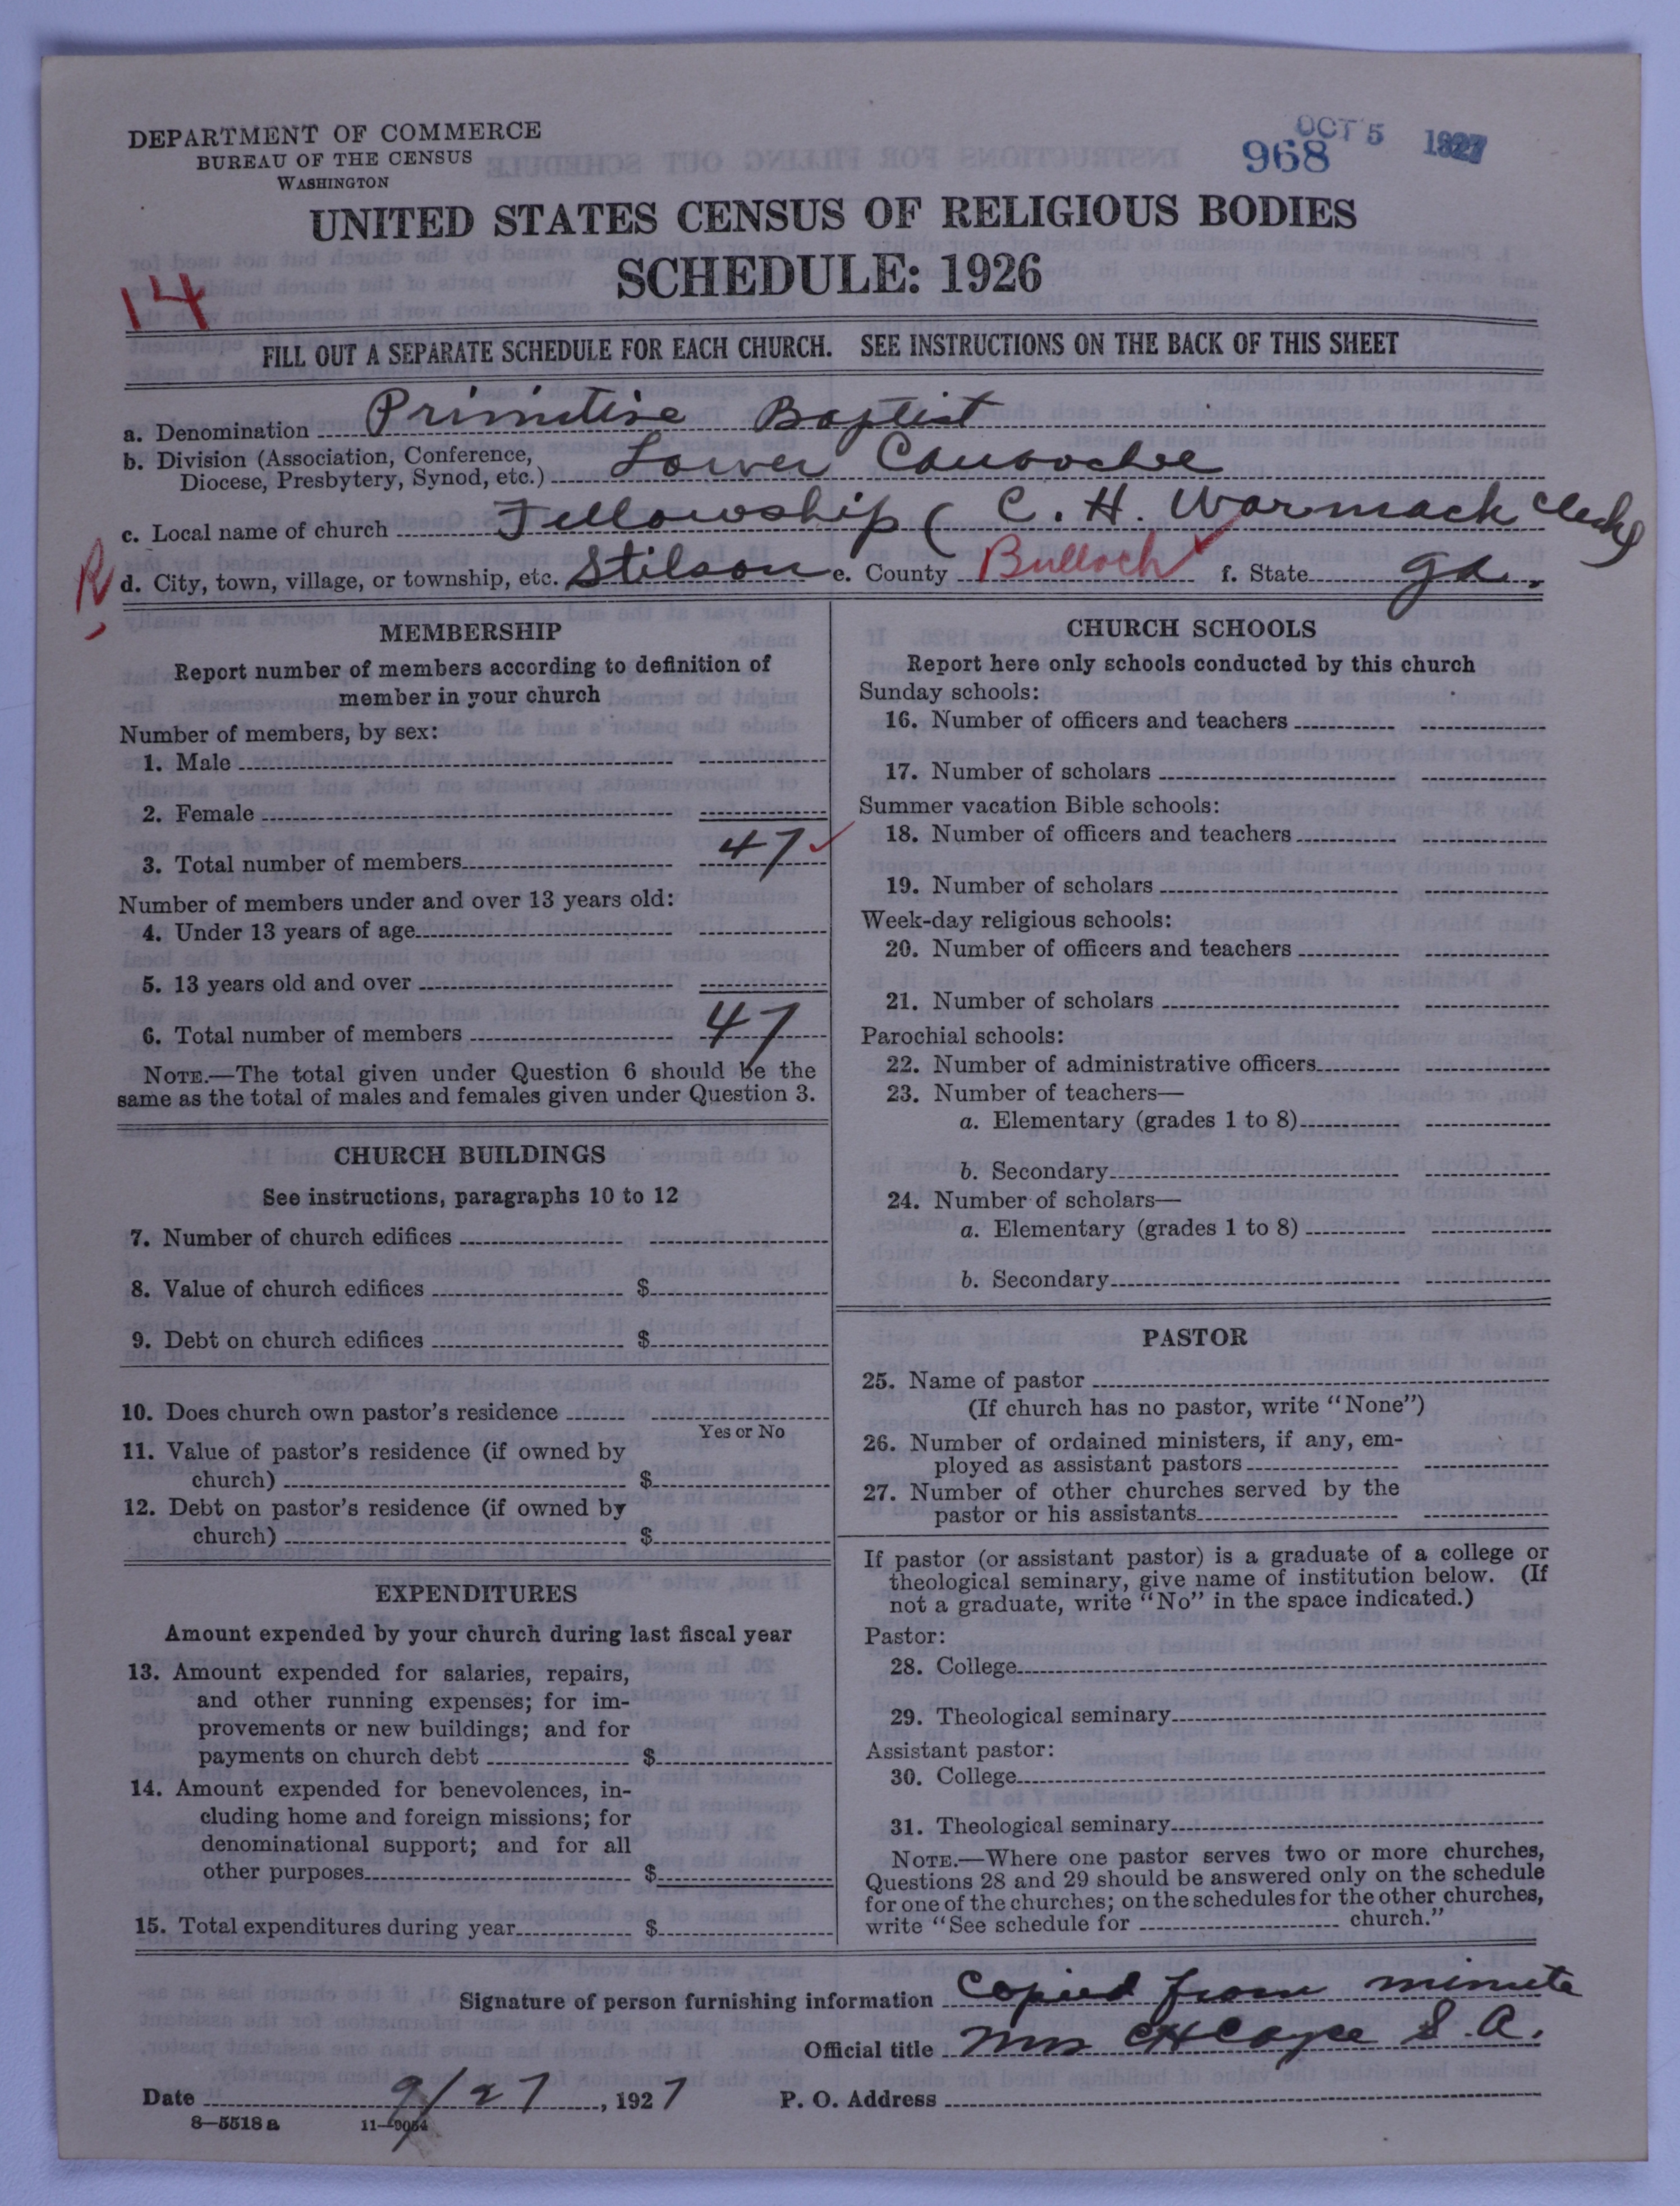 DEPARTMENT OF COMMERCE
BUREAU OF THE CENSUS
WASHINGTON
OCT 5 1927
968
UNITED STATES CENSUS OF RELIGIOUS BODIES
SCHEDULE: 1926
14
FILL OUT A SEPARATE SCHEDULE FOR EACH CHURCH. SEE INSTRUCTIONS ON THE BACK OF THIS SHEET
a. Denomination Primitive Baptist
b. Division (Association, Conference, Diocese, Presbytery, Synod, etc.) Lower Canoochee
c. Local name of church Fellowship (C. H. Warmack Clerk)
R
d. City, town, village, or township, etc. Stilson e. County Bulloch f. State Ga.
MEMBERSHIP
Report number of members according to definition of
member in your church
Number of members, by sex:
1. Male
2. Female
3. Total number of members 47
Number of members under and over 13 years old:
4. Under 13 years of age
5. 13 years old and over
6. Total number of members 47
NOTE.—The total given under Question 6 should be the
same as the total of males and females given under Question 3.
CHURCH BUILDINGS
See instructions, paragraphs 10 to 12
7. Number of church edifices
8. Value of church edifices $
9. Debt on church edifices $
10. Does church own pastor's residence
Yes or No
11. Value of pastor's residence (if owned by
church) $
12. Debt on pastor's residence (if owned by
church) $
EXPENDITURES
Amount expended by your church during last fiscal year
13. Amount expended for salaries, repairs,
and other running expenses; for im-
provements or new buildings; and for
payments on church debt $
14. Amount expended for benevolences, in-
cluding home and foreign missions; for
denominational support; and for all
other purposes $
15. Total expenditures during year $
CHURCH SCHOOLS
Report here only schools conducted by this church
Sunday schools:
16. Number of officers and teachers
17. Number of scholars
Summer vacation Bible schools:
18. Number of officers and teachers
19. Number of scholars
Week-day religious schools:
20. Number of officers and teachers
21. Number of scholars
Parochial schools:
22. Number of administrative officers
23. Number of teachers—
a. Elementary (grades 1 to 8)
b. Secondary
24. Number of scholars—
a. Elementary (grades 1 to 8)
b. Secondary
PASTOR
25. Name of pastor
(If church has no pastor, write "None")
26. Number of ordained ministers, if any, em-
ployed as assistant pastors
27. Number of other churches served by the
pastor or his assistants
If pastor (or assistant pastor) is a graduate of a college or
theological seminary, give name of institution below. (If
not a graduate, write "No" in the space indicated.)
Pastor:
28. College
29. Theological seminary
Assistant pastor:
30. College
31. Theological seminary
NOTE.—Where one pastor serves two or more churches,
Questions 28 and 29 should be answered only on the schedule
for one of the churches; on the schedules for the other churches,
write "See schedule for church."
Signature of person furnishing information Copied from minute
Official title Mrs CH Cayce S. A.
Date 9/27, 1927 P. O. Address
8—5518a 11—9054